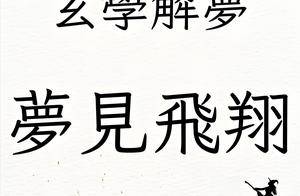 玄學解夢
夢見飛翔